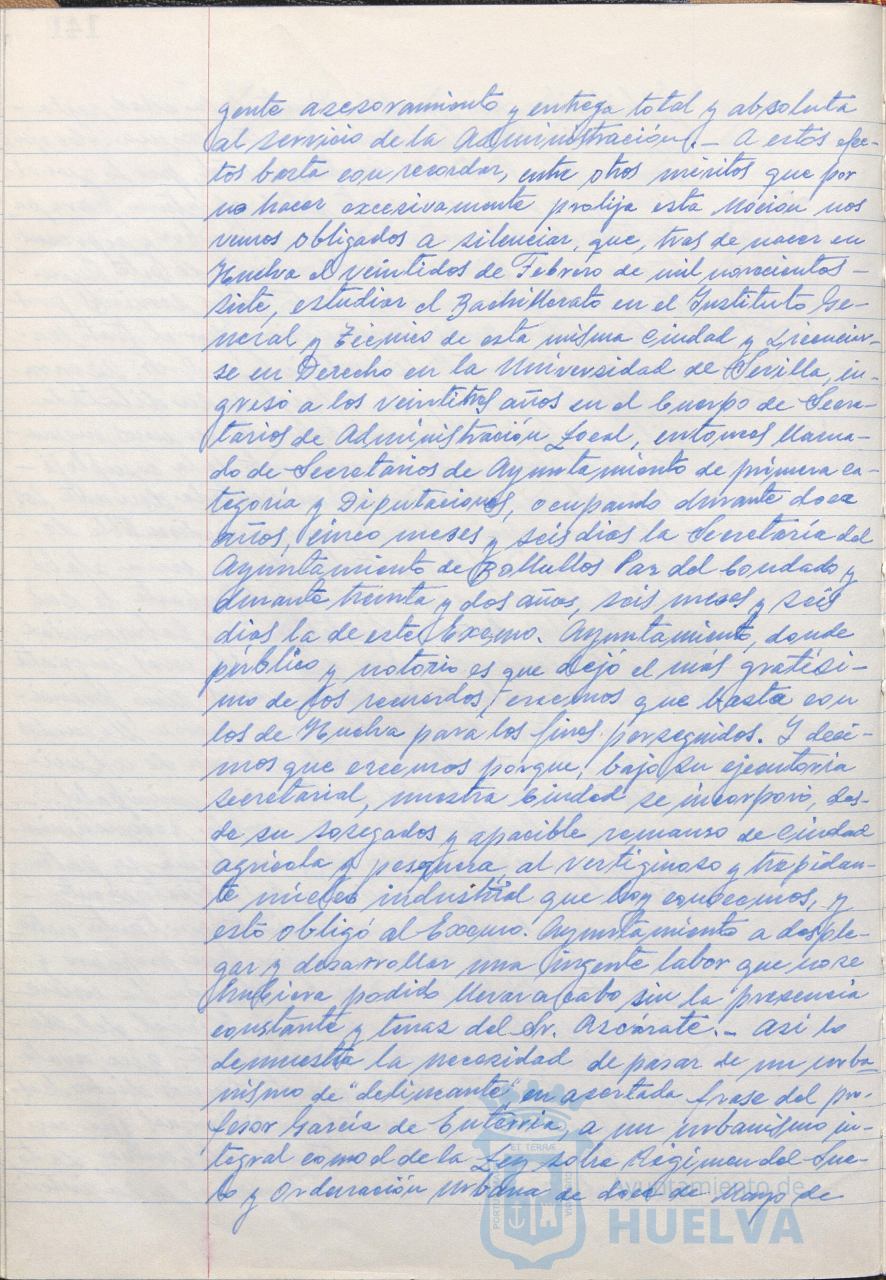 gente asesoramiento y entrega total y absoluta
al servicio de la Administración.- A estos efec-
tos basta con recordar, entre otros méritos que por
no hacer excesivamente prolija esta Moción nos
vemos obligados a silenciar, que, tras de nacer en
Huelva el veintidos de Febrero de mil novecientos-
siete, estudiar el Bachillerato en el Instituto Ge-
neral y Técnico de esta misma Ciudad y Licenciar-
se en Derecho en la Universidad de Sevilla, in-
gresó a los veintitres años en el Cuerpo de Secre-
tarios de Administración Local, entonces llama-
do de Secretarios de Ayuntamiento de primera ca-
tegoría y Diputaciones, ocupando durante doce
años, cinco meses y seis dias la Secretaría del
Ayuntamiento de Bollullos Par del Condado y
durante treinta y dos años, seis meses y seis
dias la de este Excmo. Ayuntamiento, donde
público y notorio es que dejó el más gratísi-
mo de los recuerdos, creemos que basta con
los de Huelva para los fines perseguidos. Y deci-
mos que creemos porque, bajo su ejecutoria
secretarial, nuestra Ciudad se incorporó, des-
de su sosegados y apacible remanso de Ciudad
agrícola y pesquera, al vertiginoso y trepidan-
te núcleo industrial que hoy conocemos, y
esto obligó al Excmo. Ayuntamiento a desple-
gar y desarrollar una ingente labor que no se
hubiera podido llevar a cabo sin la presencia
constante y tenaz del Sr. Azcárate.- Así lo
demuestra la necesidad de pasar de un urba-
nismo de "delineante", en acertada frase del pro-
fesor García de Enterría, a un urbanismo in-
tegral como el de la Ley sobre Régimen del Sue-
lo y Ordenación Urbana de doce de Mayo de
ET TERRÆ
Ayuntamiento de
HUELVA